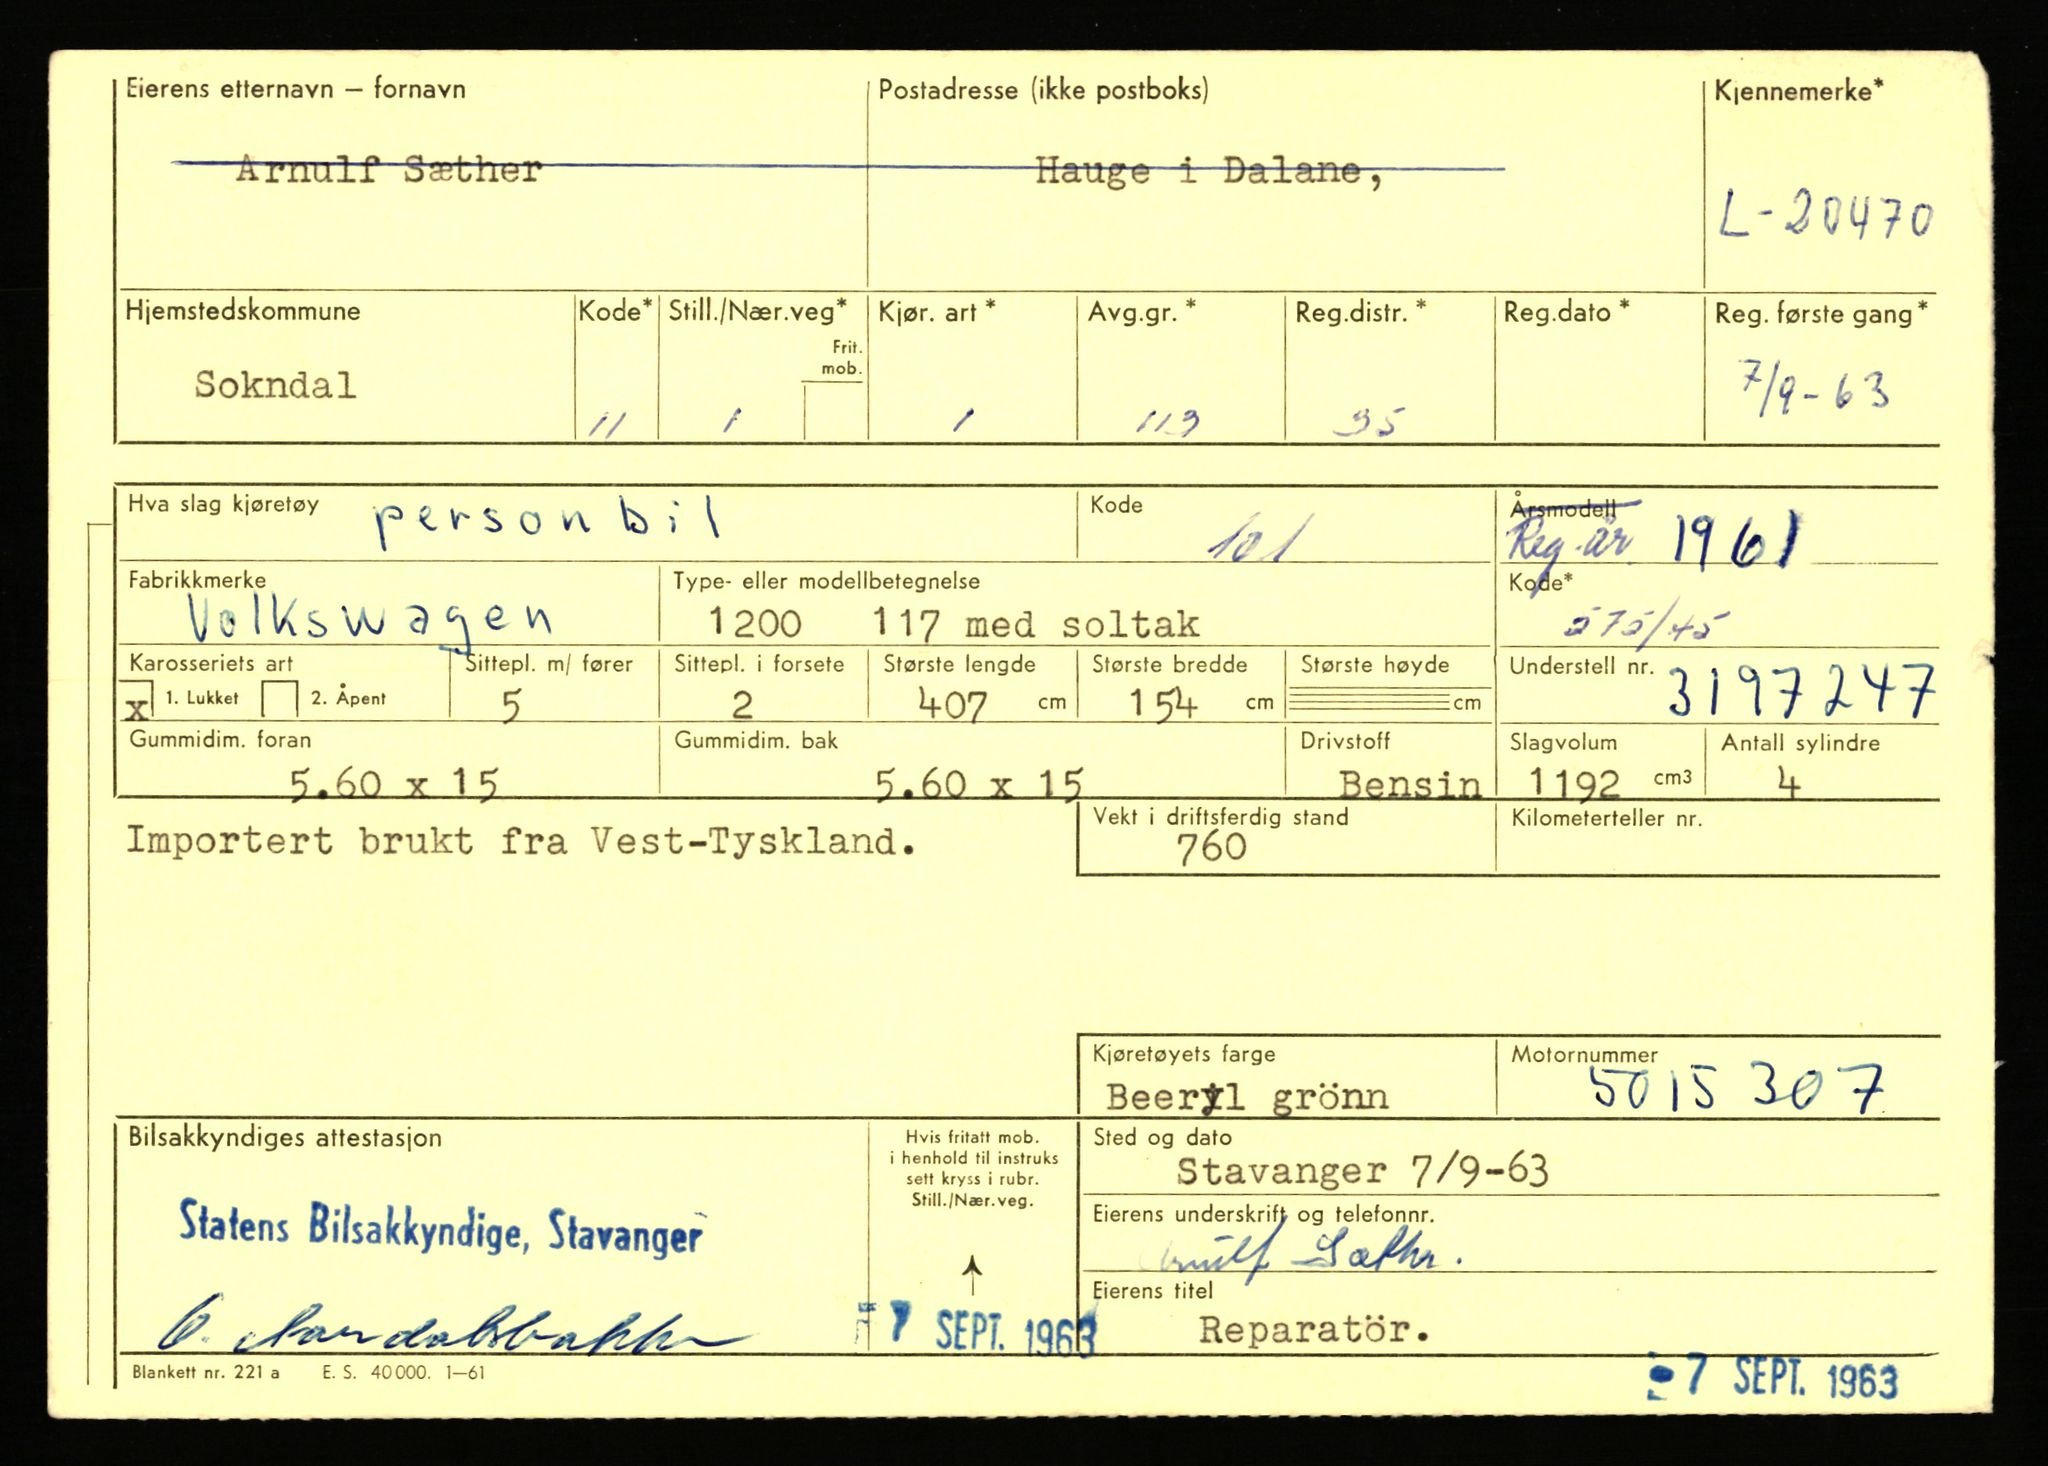 Eierens etternavn – fornavn Postadresse (ikke postboks) Kjennemerke*
Arnulf Sæther Hauge i Dalane,
L-20470
Hjemstedskommune Kode* Still./Nær.veg* Kjør. art * Avg.gr. * Reg.distr. * Reg.dato * Reg. første gang*
Frit.
mob.
Sokndal 11 1 1 113 35 7/9-63
Hva slag kjøretøy personbil Kode 101 Årsmodell
Reg.år 1961
Fabrikkmerke Type- eller modellbetegnelse Kode*
Volkswagen 1200 117 med soltak 575/45
Karosseriets art Sittepl. m/ fører Sittepl. i forsete Største lengde Største bredde Største høyde Understell nr. 3197247
x 1. Lukket 2. Åpent 5 2 407 cm 154 cm cm
Gummidim. foran Gummidim. bak Drivstoff Slagvolum Antall sylindre
5.60 x 15 5.60 x 15 Bensin 1192 cm3 4
Importert brukt fra Vest-Tyskland. Vekt i driftsferdig stand Kilometerteller nr.
760
Kjøretøyets farge Motornummer
Beeryl grönn 5015307
Bilsakkyndiges attestasjon Hvis fritatt mob. Sted og dato
i henhold til instruks
sett kryss i rubr.
Still./Nær.veg.
Stavanger 7/9-63
Statens Bilsakkyndige, Stavanger Eierens underskrift og telefonnr.
Arnulf Sæther.
Eierens titel
7 SEPT. 1963 Reparatör.
Blankett nr. 221 a E. S. 40 000. 1–61 7 SEPT. 1963